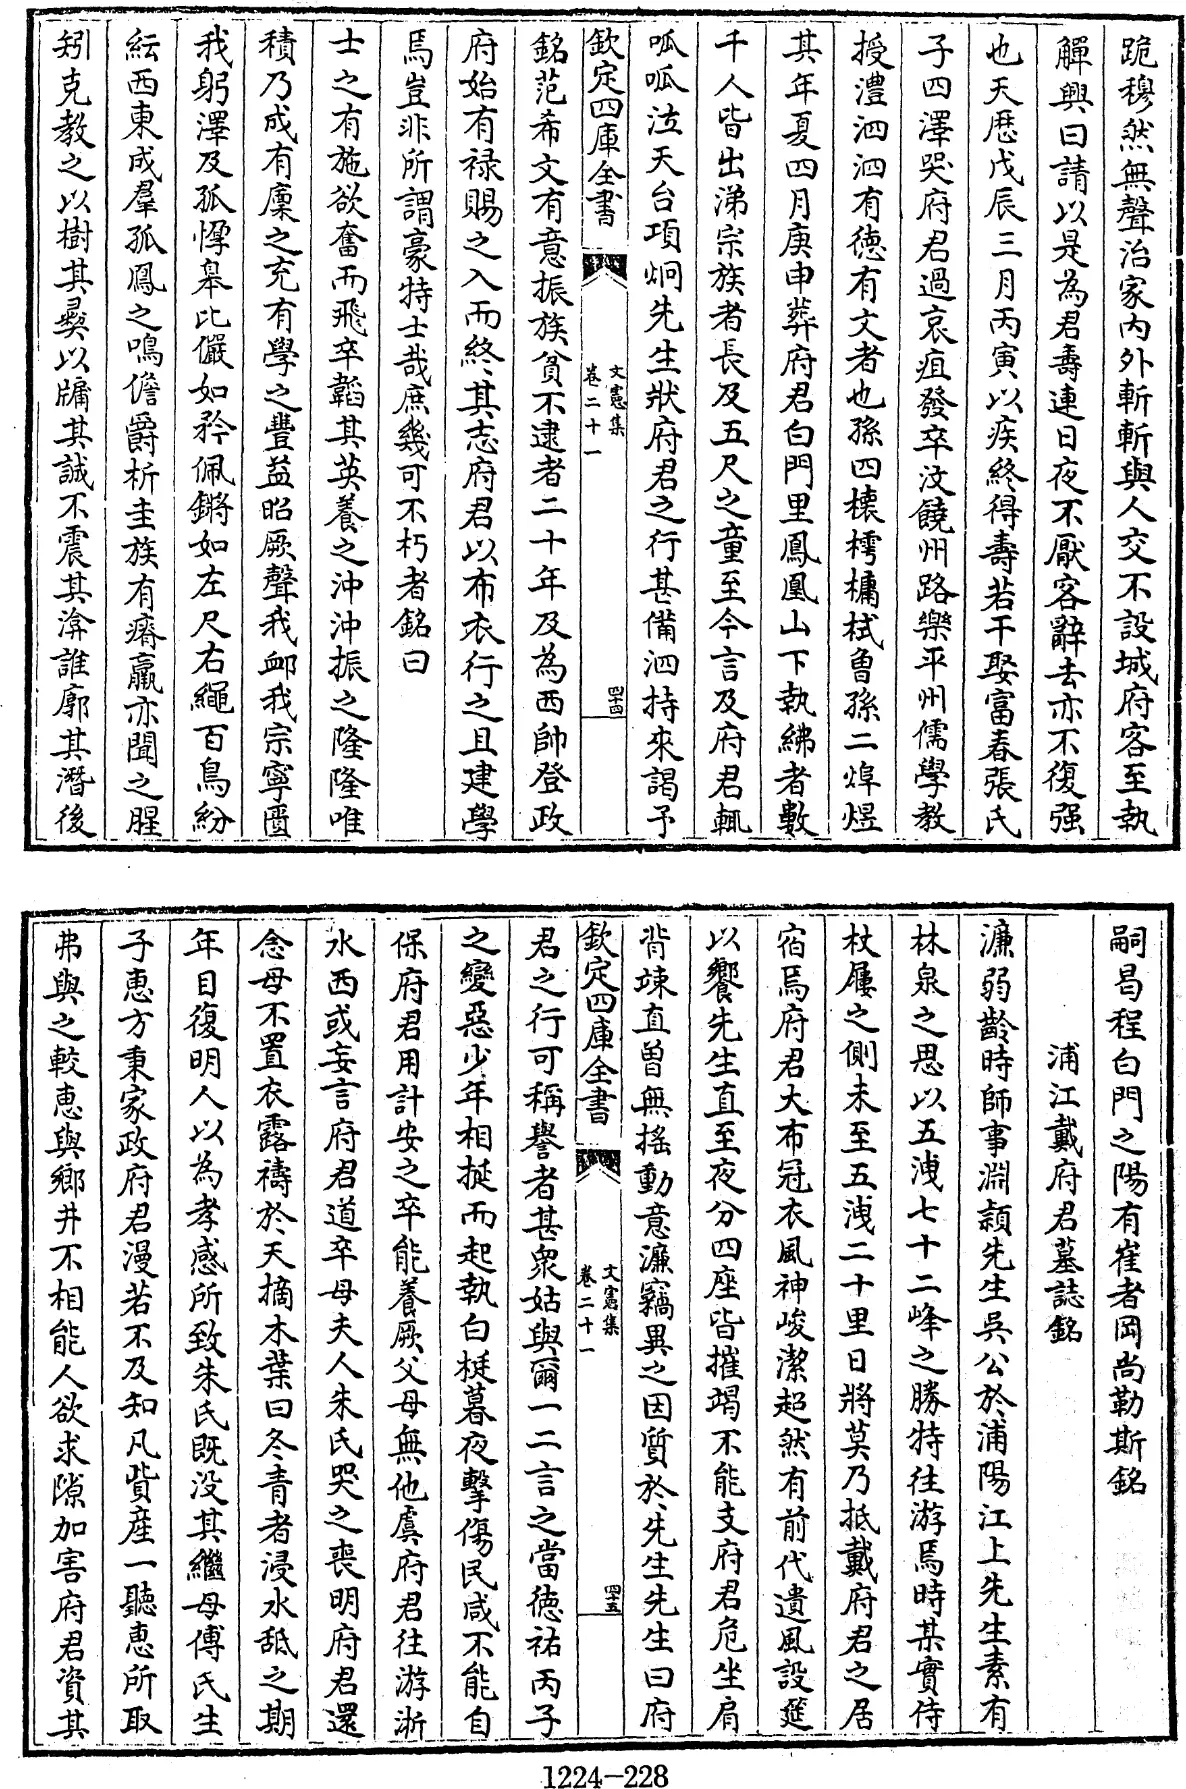 跪穆然無聲治家内外斬斬與人交不設城府客至執
觶興曰請以是為君壽連日夜不厭客辭去亦不復强
也天厯戊辰三月丙寅以疾終得壽若干娶富春張氏
子四澤哭府君過哀疽發卒汶饒州路樂平州儒學教
授澧泗泗有徳有文者也孫四榱樗槦栻曾孫二焞煜
其年夏四月庚申葬府君白門里鳳凰山下執紼者數
千人皆出涕宗族者長及五尺之童至今言及府君輒
呱呱泣天台項炯先生狀府君之行甚備泗持來謁予
欽定四庫全書
文憲集
卷二十一
四十四
銘范希文有意振族貧不逮者二十年及為西帥登政
府始有禄賜之入而終其志府君以布衣行之且建學
焉豈非所謂豪特士哉庶幾可不朽者銘曰
士之有施欲奮而飛卒韜其英養之沖沖振之隆隆唯
積乃成有廩之充有學之豐益昭厥聲我卹我宗寧啬
我躬澤及孤惸皋比儼如矜佩鏘如左尺右繩百鳥紛
紜西東成羣孤鳳之鳴儋爵析圭族有瘠羸亦聞之腥
矧克教之以樹其彞以牗其誠不震其渰誰廓其潛後
嗣昌程白門之陽有崔者岡尚勒斯銘
浦江戴府君墓誌銘
濂弱齡時師事淵頴先生吳公於浦陽江上先生素有
林泉之思以五洩七十二峰之勝特往游焉時某實侍
杖屨之側未至五洩二十里日將莫乃抵戴府君之居
宿焉府君大布冠衣風神峻潔超然有前代遺風設筵
以饗先生直至夜分四座皆摧竭不能支府君危坐肩
背竦直曽無搖動意濂竊異之因質於先生先生曰府
欽定四庫全書
文憲集
卷二十一
四十五
君之行可稱譽者甚衆姑與爾一二言之當徳祐丙子
之變惡少年相挻而起執白梃暮夜擊傷民咸不能自
保府君用計安之卒能養厥父母無他虞府君往游浙
水西或妄言府君道卒母夫人朱氏哭之喪明府君還
念母不置衣露禱於天摘木葉曰冬青者浸水舐之期
年目復明人以為孝感所致朱氏既没其繼母傅氏生
子恵方秉家政府君漫若不及知凡貲産一聽恵所取
弗與之較恵與鄉井不相能人欲求隙加害府君資其
1224-228